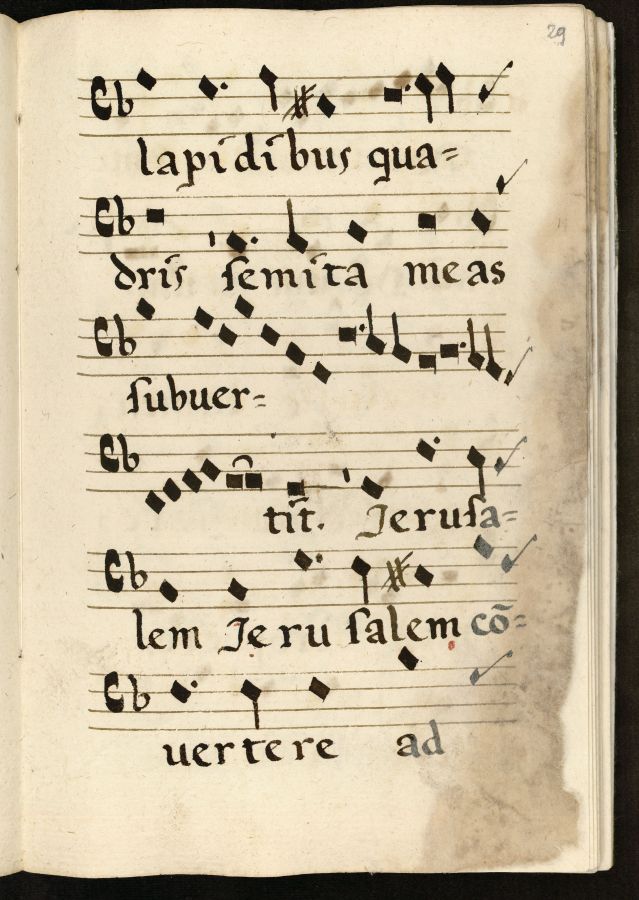 29
lapidibus qua=
dris semita meas
subuer=
tit̄. Jerusa=
lem Jerusalem cō=
uertere ad